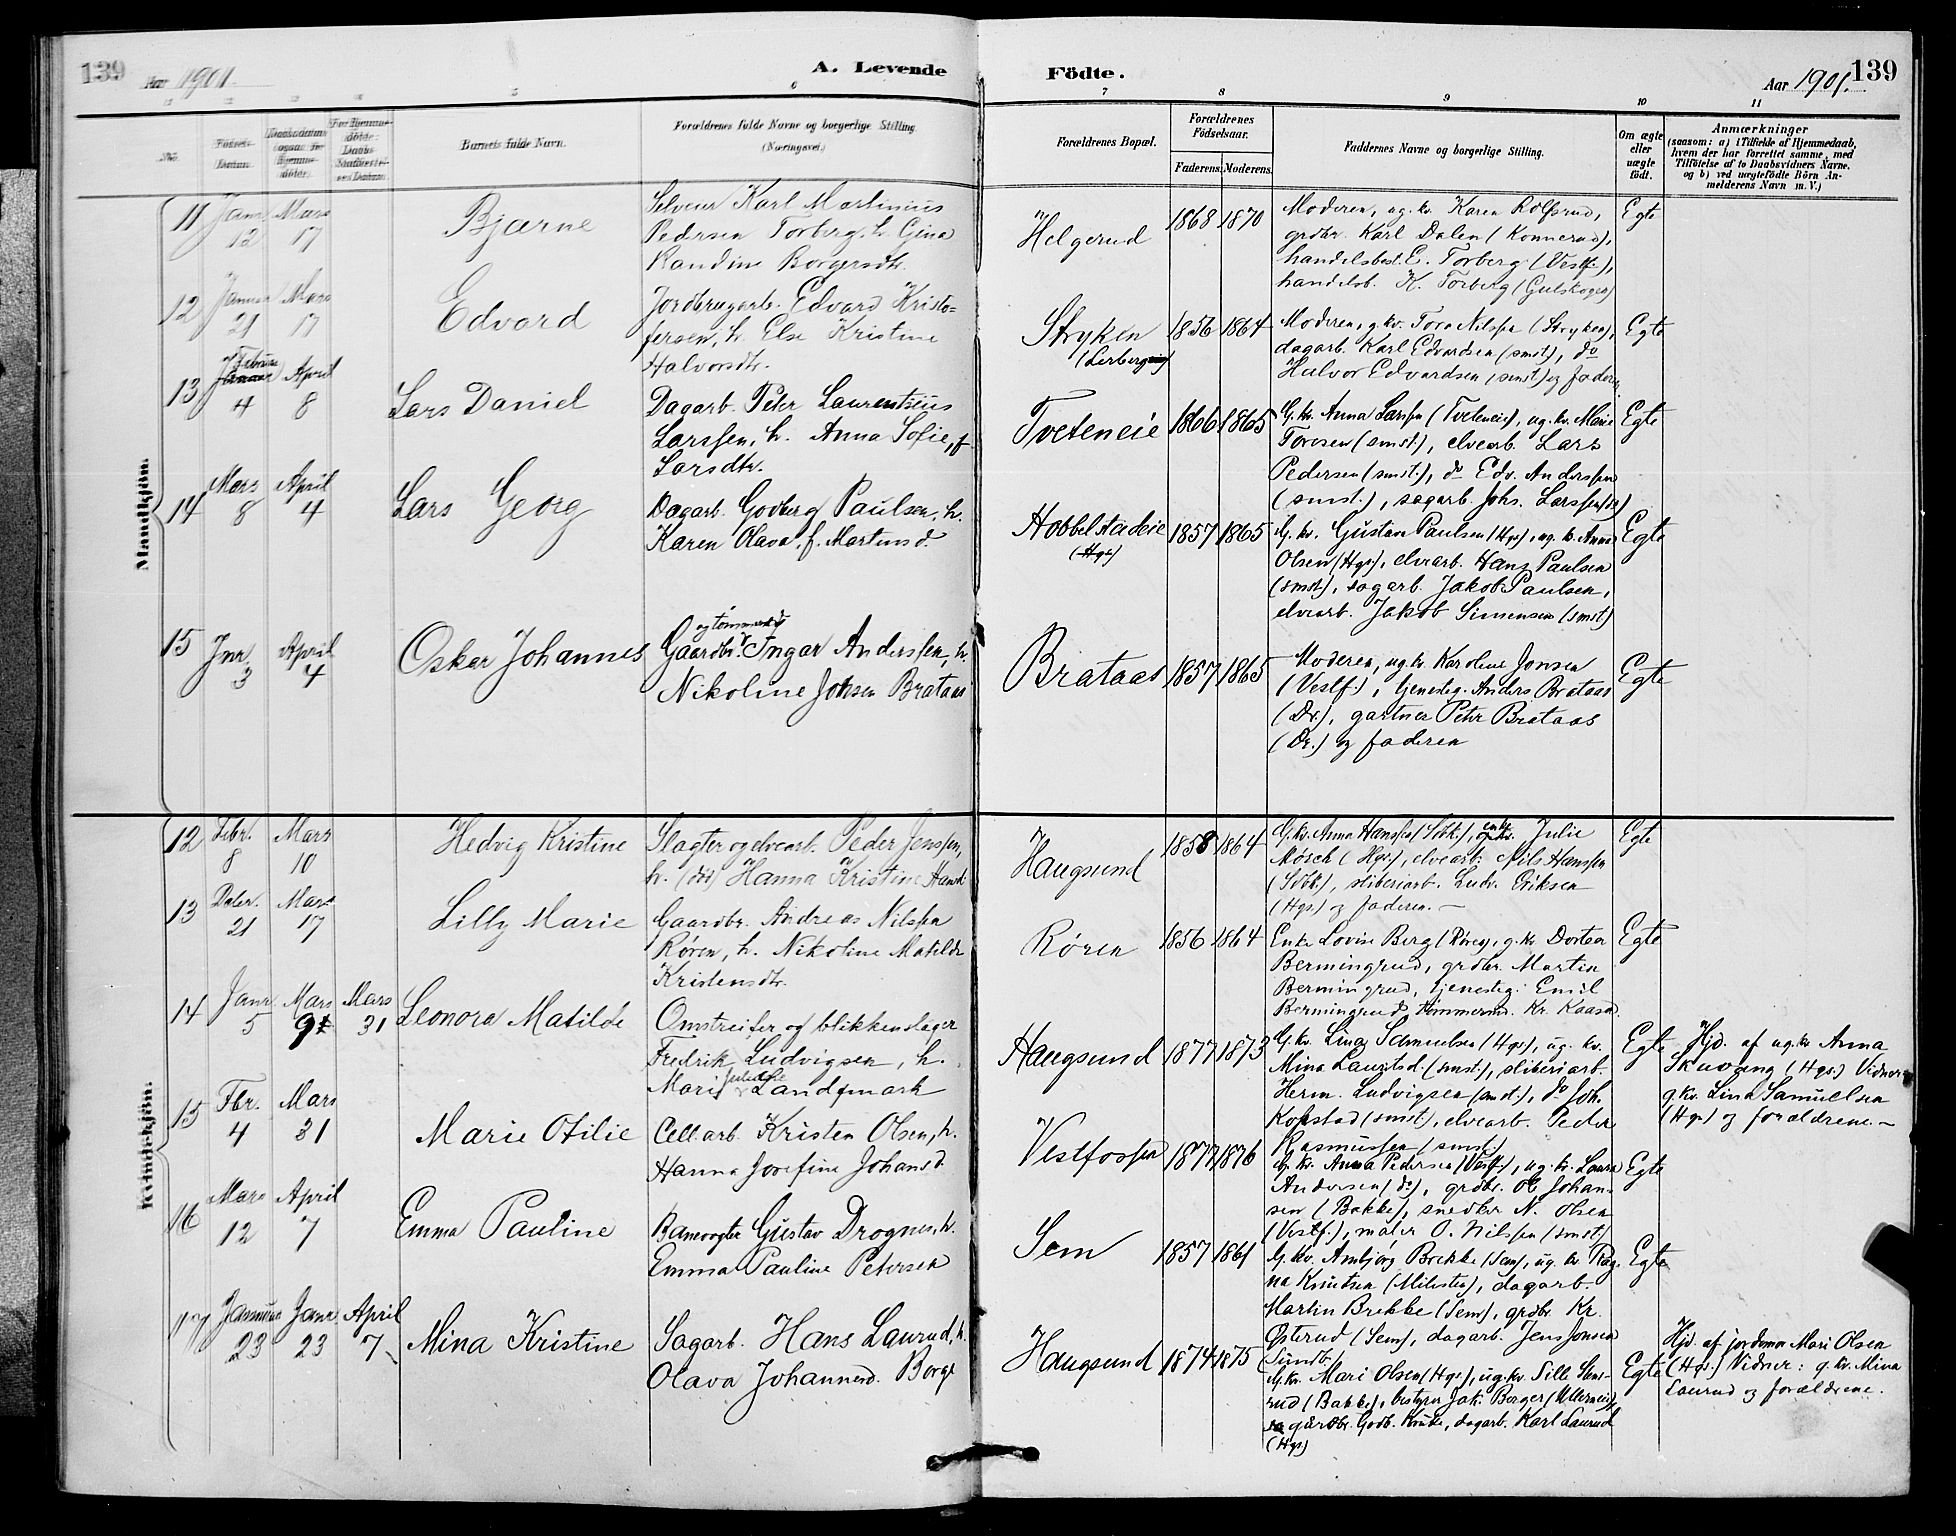 139
Aar 1901.
A. Levende
Födte.
Aar 1901.
139
5
6
7
8
9
10
11
No.
Födsels-
Datum.
Barnets fulde Navn.
Forældrenes fulde Navne og borgerlige Stilling.
(Næringsvei.)
Forældrenes Bopæl.
Forældrenes
Födselsaar.
Faderens.
Moderens.
Faddernes Navne og borgerlige Stilling.
Om ægte
eller
uægte
födt.
Anmærkninger
(saasom: a) i Tilfælde af Hjemmedaab,
hvem der har forrettet samme, med
Tilföielse af to Daabsvidners Navne.
og b) ved uægtefödte Börn An-
melderens Navn m. V.)
Mandkjön.
11
Janr 12
Mars 17
Bjarne
Selveier Karl Martinius
Pedersen Torberg, h. Gina
Randine Borgersdtr.
Helgerud
1868
1870
Moderen, ug. kv. Karen Rolfsrud,
grdbr. Karl Dalen (Konnerud),
handelsbest. E. Torberg (Vestf.),
handelsb. K. Torberg (Gulskogen)
Egte
12
Januar 21
Mars 17
Edvard
Jordbrugarb. Edvard Kristo-
fersen, h. Else Kristine
Halvorsdtr.
Stryken
1856
1864
Moderen, g. kv. Tora Nilssen (Stryken),
dagarb. Karl Edvardsen (smst), do
Halvor Edvardsen (smst) og faderen
Egte
13
Februar
Januar 4
April 8
Lars Daniel
Dagarb. Peter Laurentsius
Larssen, h. Anna Sofie, f.
Larsdtr.
Tveteneie
1866
1865
G. kv. Anna Larssen (Tveteneie), ug. kv. Marie
Toresen (smst.), elvearb. Lars
Pedersen (smst.), do Edv. Anderssen
(smst.), sagarb. Johs. Larssen (do)
Egte
14
Mars 8
April 4
Lars Georg
Dagarb. Godberg Paulsen, h.
Karen Olava, f. Martinsd.
Hobbelstadeie
(Hgs)
1857
1865
G. kv. Gustava Paulsen (Hgs), ug. k. Anna
Olsen (Hgs), elvearb. Hans Paulsen
(smst), sagarb. Jakob Paulsen,
elvearb. Jakob Simensen (smst)
Egte
15
Jnr. 3
April 4
Oskar Johannes
og tømmermd
Gaardbr. Ingar Anderssen, h.
Nikoline Johsen Brataas
Brataas
1857
1865
Moderen, ug. kv. Karoline Jonsen
(Vestf.), tjenesteg. Anders Brataas
(Dr.), gartner Petr Brataas
(Dr.) og faderen
Egte
Kvindekjön.
12
Febr. 8
Mars 10
Hedvig Kristine
Slagter og elvearb. Peder Jenssen,
h. (død) Hanna Kristine Hansd.
Haugsund
1858
1864
G. kv. Anna Hanssen (Sbk.), enke Julie
Mosch (Hgs.), elvearb. Nils Hanssen
(Sbk.), sliberiarb. Ludv. Eriksen
(Hgs.) og faderen. —
Egte
13
21
Mars 17
Lilly Marie
Gaardbr. Andreas Nilssen
Røren, h. Nikoline Matilde
Kristensdtr.
Røren
1856
1864
Enke Lovise Berg (Røren), g. kv. Dortea
Bermingrud, grdbr. Martin
Bermingrud, tjenesteg. Emil
Bermingrud, tømmermd. Kr. Kaasa.
Egte
14
Janr. 5
Mars 9
Mars 31
Leonora Matilde
Omstreifer og blikkenslager
Fredrik Ludvigsen, h.
Marie Landqmark
Haugsund
1877
1873
G. kv. Lina Samuelsen (Hgs), ug. kv.
Mina Lauritsd. (smst), sliberiarb.
Herm. Ludvigsen (smst.), do Joh.
Kopstad (smst), elvearb. Peder
Rasmussen (smst)
Egte
Hjd. af ug. kv Anna
Skuvang (Hgs.) Vidner:
g. kv. Lina Samuelsen
(Hgs) og forældrene. —
15
Fbr. 4
Mars 31
Marie Otilie
Cell. arb. Kristen Olsen, h.
Hanna Josefine Johansd.
Vestfossen
1877
1876
G. kv. Anna Pedersen (Vestf.), ug. kv. Laura
Andersen (do), grdbr. Ole Johan-
sen (Bakke), snedker N. Olsen
(Vestf.), maler O. Nilssen (smst)
Egte
16
Mars 12
April 7
Emma Pauline
Banevogter Gustav Drognes, h.
Emma Pauline Petersen
Sem
1857
1861
G. kv. Ambjørg Brekke (Sem), ug. kv. Rag-
na Knutsen (Milesten), dagarb.
Martin Brekke (Sem), grdbr. Kr.
Østerud (Sem), dagarb. Jens Jonsen
(Sundb.)
Egte
17
Januar 23
Janr 23
April 7
Mina Kristine
Sagarb. Hans Laurud, h.
Olava Johannesd. Borge
Haugsund
1874
1875
G. kv. Mari Olsen (Hgs), ug. kv. Sille Stens-
rud (Bakke), bestyrer Jak. Borger (Ullerneie),
gårdbr. Godb. Knive, dagarb. Karl Laurud
(Hgs)
Egte
Hjd. af jordmor Mari Olsen
(Hgs.) Vidner: g. kv. Mina
Laurud og forældrene.